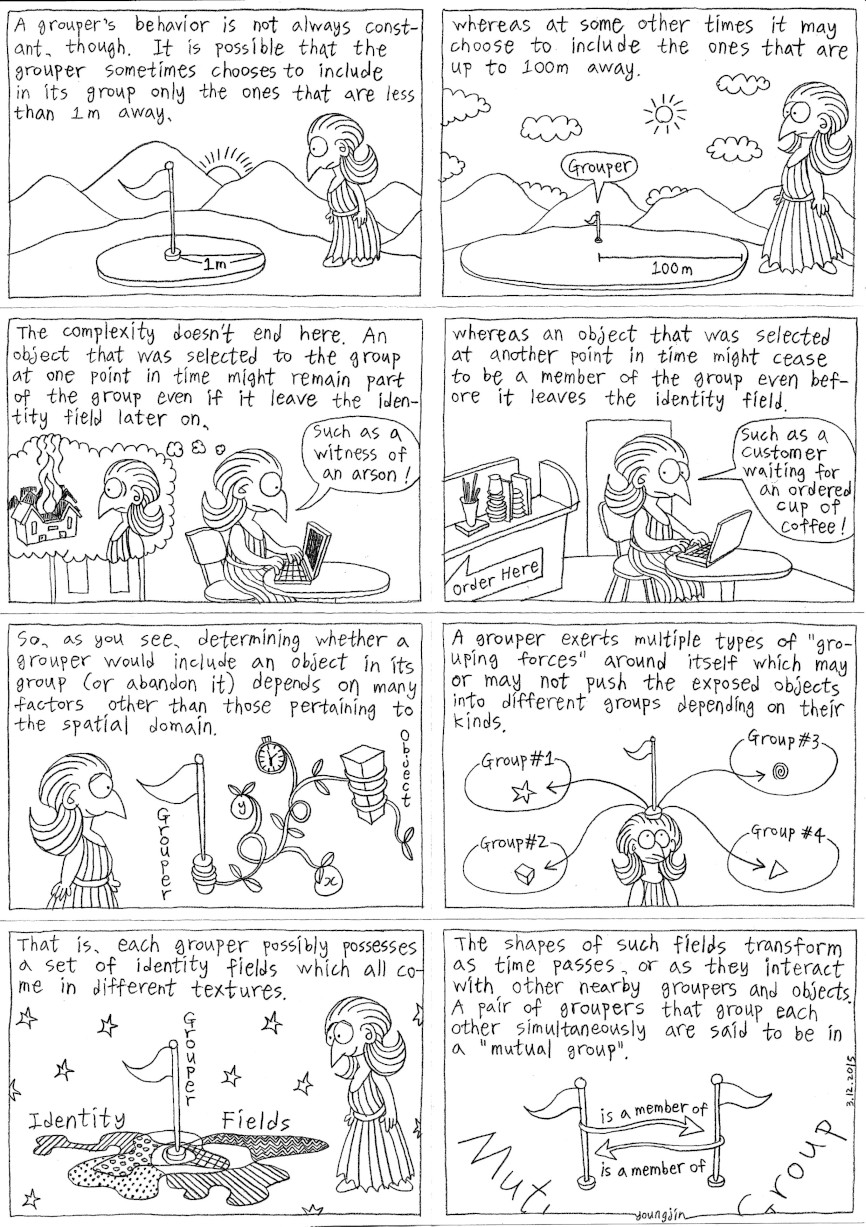 A grouper's behavior is not always const-
ant, though. It is possible that the
grouper sometimes chooses to include
in its group only the ones that are less
than 1m away,
1m
whereas at some other times it may
choose to include the ones that are
up to 100m away.
Grouper
100m
The complexity doesn't end here. An
object that was selected to the group
at one point in time might remain part
of the group even if it leave the iden-
tity field later on,
Such as a
witness of
an arson!
whereas an object that was selected
at another point in time might cease
to be a member of the group even bef-
ore it leaves the identity field.
Such as a
customer
waiting for
an ordered
cup of
coffee!
Order Here
So, as you see, determining whether a
grouper would include an object in its
group (or abandon it) depends on many
factors other than those pertaining to
the spatial domain.
Grouper
y
x
Object
A grouper exerts multiple types of "gro-
uping forces" around itself which may
or may not push the exposed objects
into different groups depending on their
kinds.
Group #1
Group #3
Group #2
Group #4
That is, each grouper possibly possesses
a set of identity fields which all co-
me in different textures.
Grouper
Identity Fields
The shapes of such fields transform
as time passes, or as they interact
with other nearby groupers and objects.
A pair of groupers that group each
other simultaneously are said to be in
a "mutual group".
is a member of
is a member of
Mut
Group
3.12.2015
youngjin